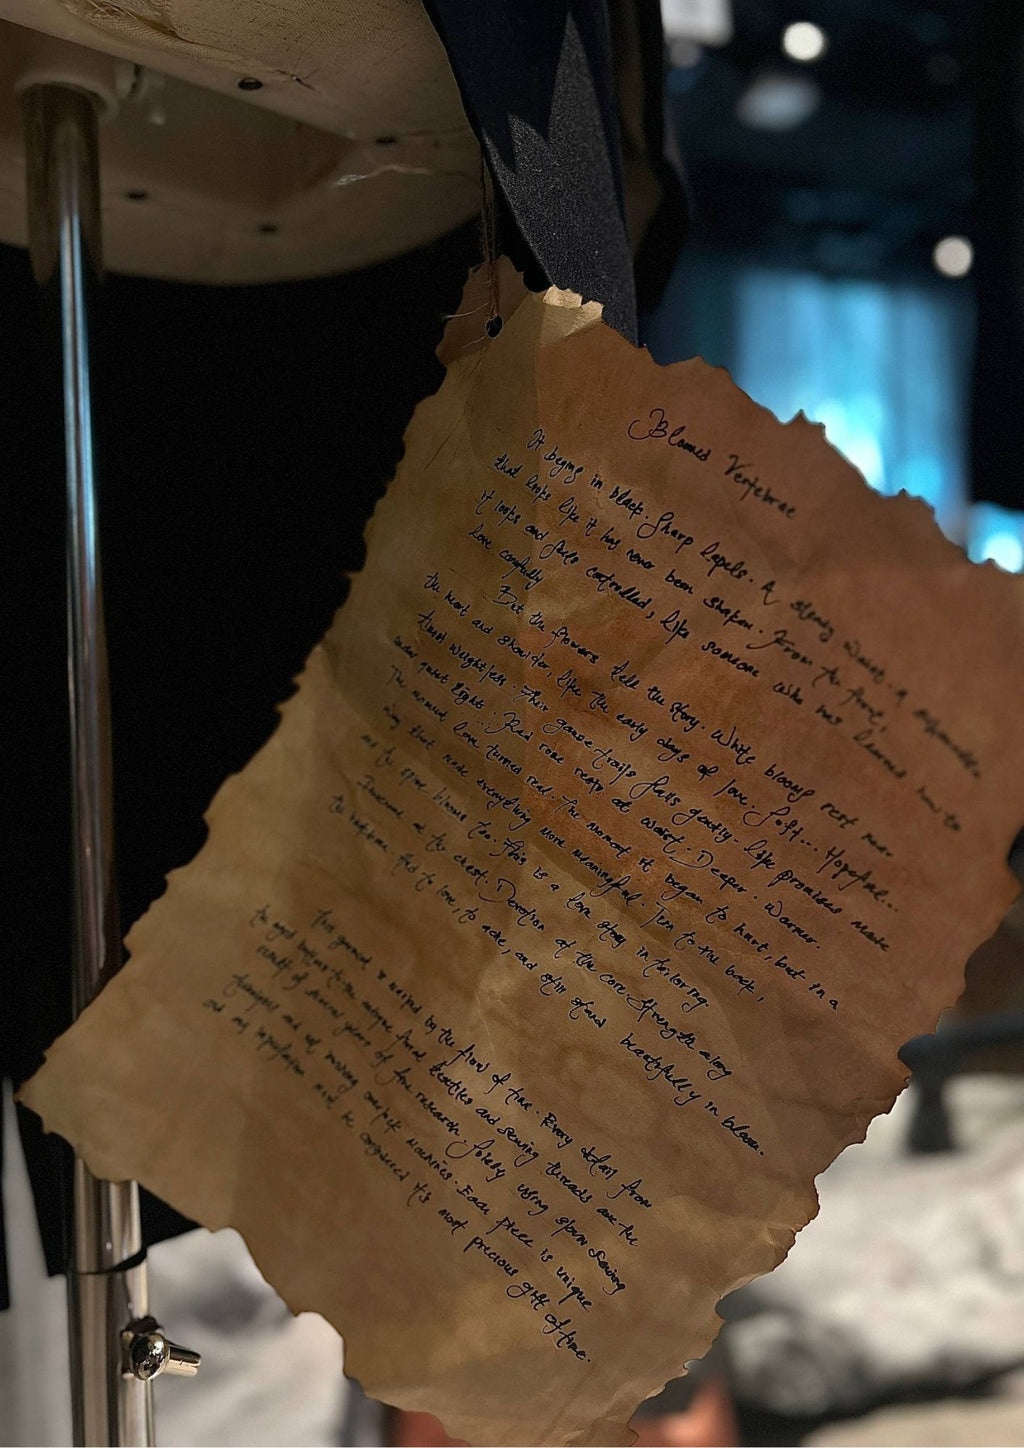 Bloomed Vertebrae
It begins in black. Sharp lapels. A steady waist. A
that looks like it has never been shaken. From the front,
it looks and feels controlled, like someone who has learned how to
love carefully
But the flowers tell the story. White blooms rest near
the heart and shoulder, like the early days of love. Soft... Hopeful...
Their gauze trails falls gently like promises made
under quiet lights... Red rose rests at waist. Deeper. Warmer.
The moment love turned real. The moment it began to hurt, but in a
way that made everything more meaningful. Turn to the back,
and the spine blooms too. This is a love story in tailoring.
at the chest. Devotion at the core. Strength along
the backbone. Had to love, to ache, and still stand beautifully in bloom.
This garment is by the flow of time. Every detail from
the aged buttons to the antique floral and sewing threads are the
result of several years of fine research. Solely using slow sewing
techniques and not involving machines. Each piece is unique
and any must be considered it's most precious gift of time.